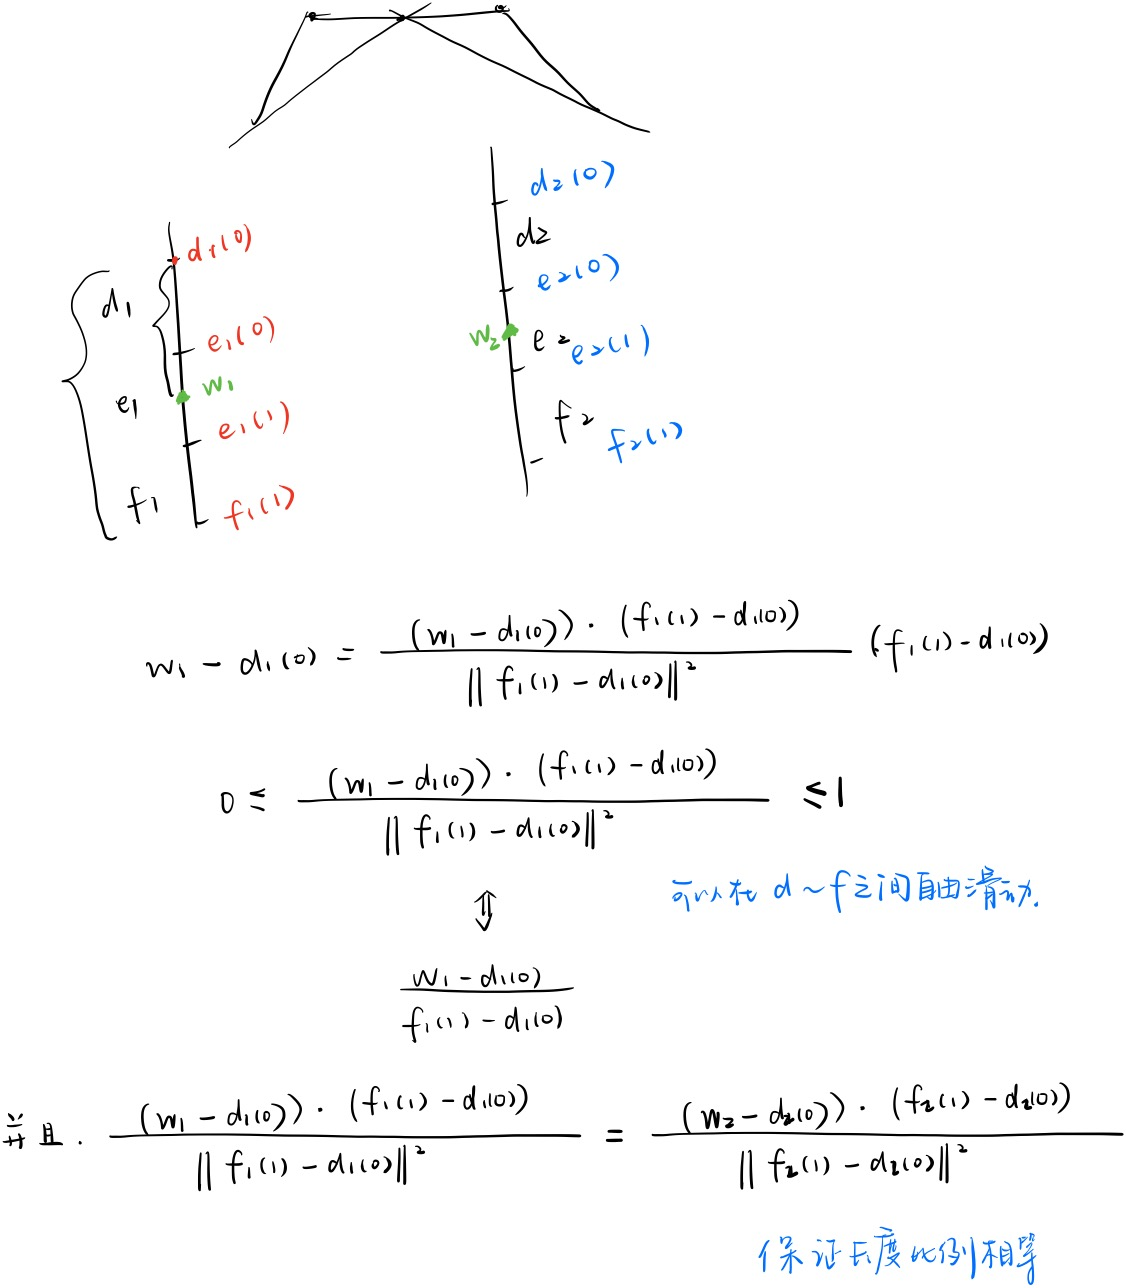 d₁(0)
d₁
e₁(0)
w₁
e₁
e₁(1)
f₁
f₁(1)
d₂(0)
d₂
e₂(0)
w₂
e₂
e₂(1)
f₂
f₂(1)
w₁ - d₁(0) = \frac{(w₁ - d₁(0)) · (f₁(1) - d₁(0))}{‖f₁(1) - d₁(0)‖²} (f₁(1) - d₁(0))
0 ≤ \frac{(w₁ - d₁(0)) · (f₁(1) - d₁(0))}{‖f₁(1) - d₁(0)‖²} ≤ 1
可以在 d ~ f 之间自由滑动.
⇕
\frac{w₁ - d₁(0)}{f₁(1) - d₁(0)}
并且. \frac{(w₁ - d₁(0)) · (f₁(1) - d₁(0))}{‖f₁(1) - d₁(0)‖²} = \frac{(w₂ - d₂(0)) · (f₂(1) - d₂(0))}{‖f₂(1) - d₂(0)‖²}
保证长度比例相等